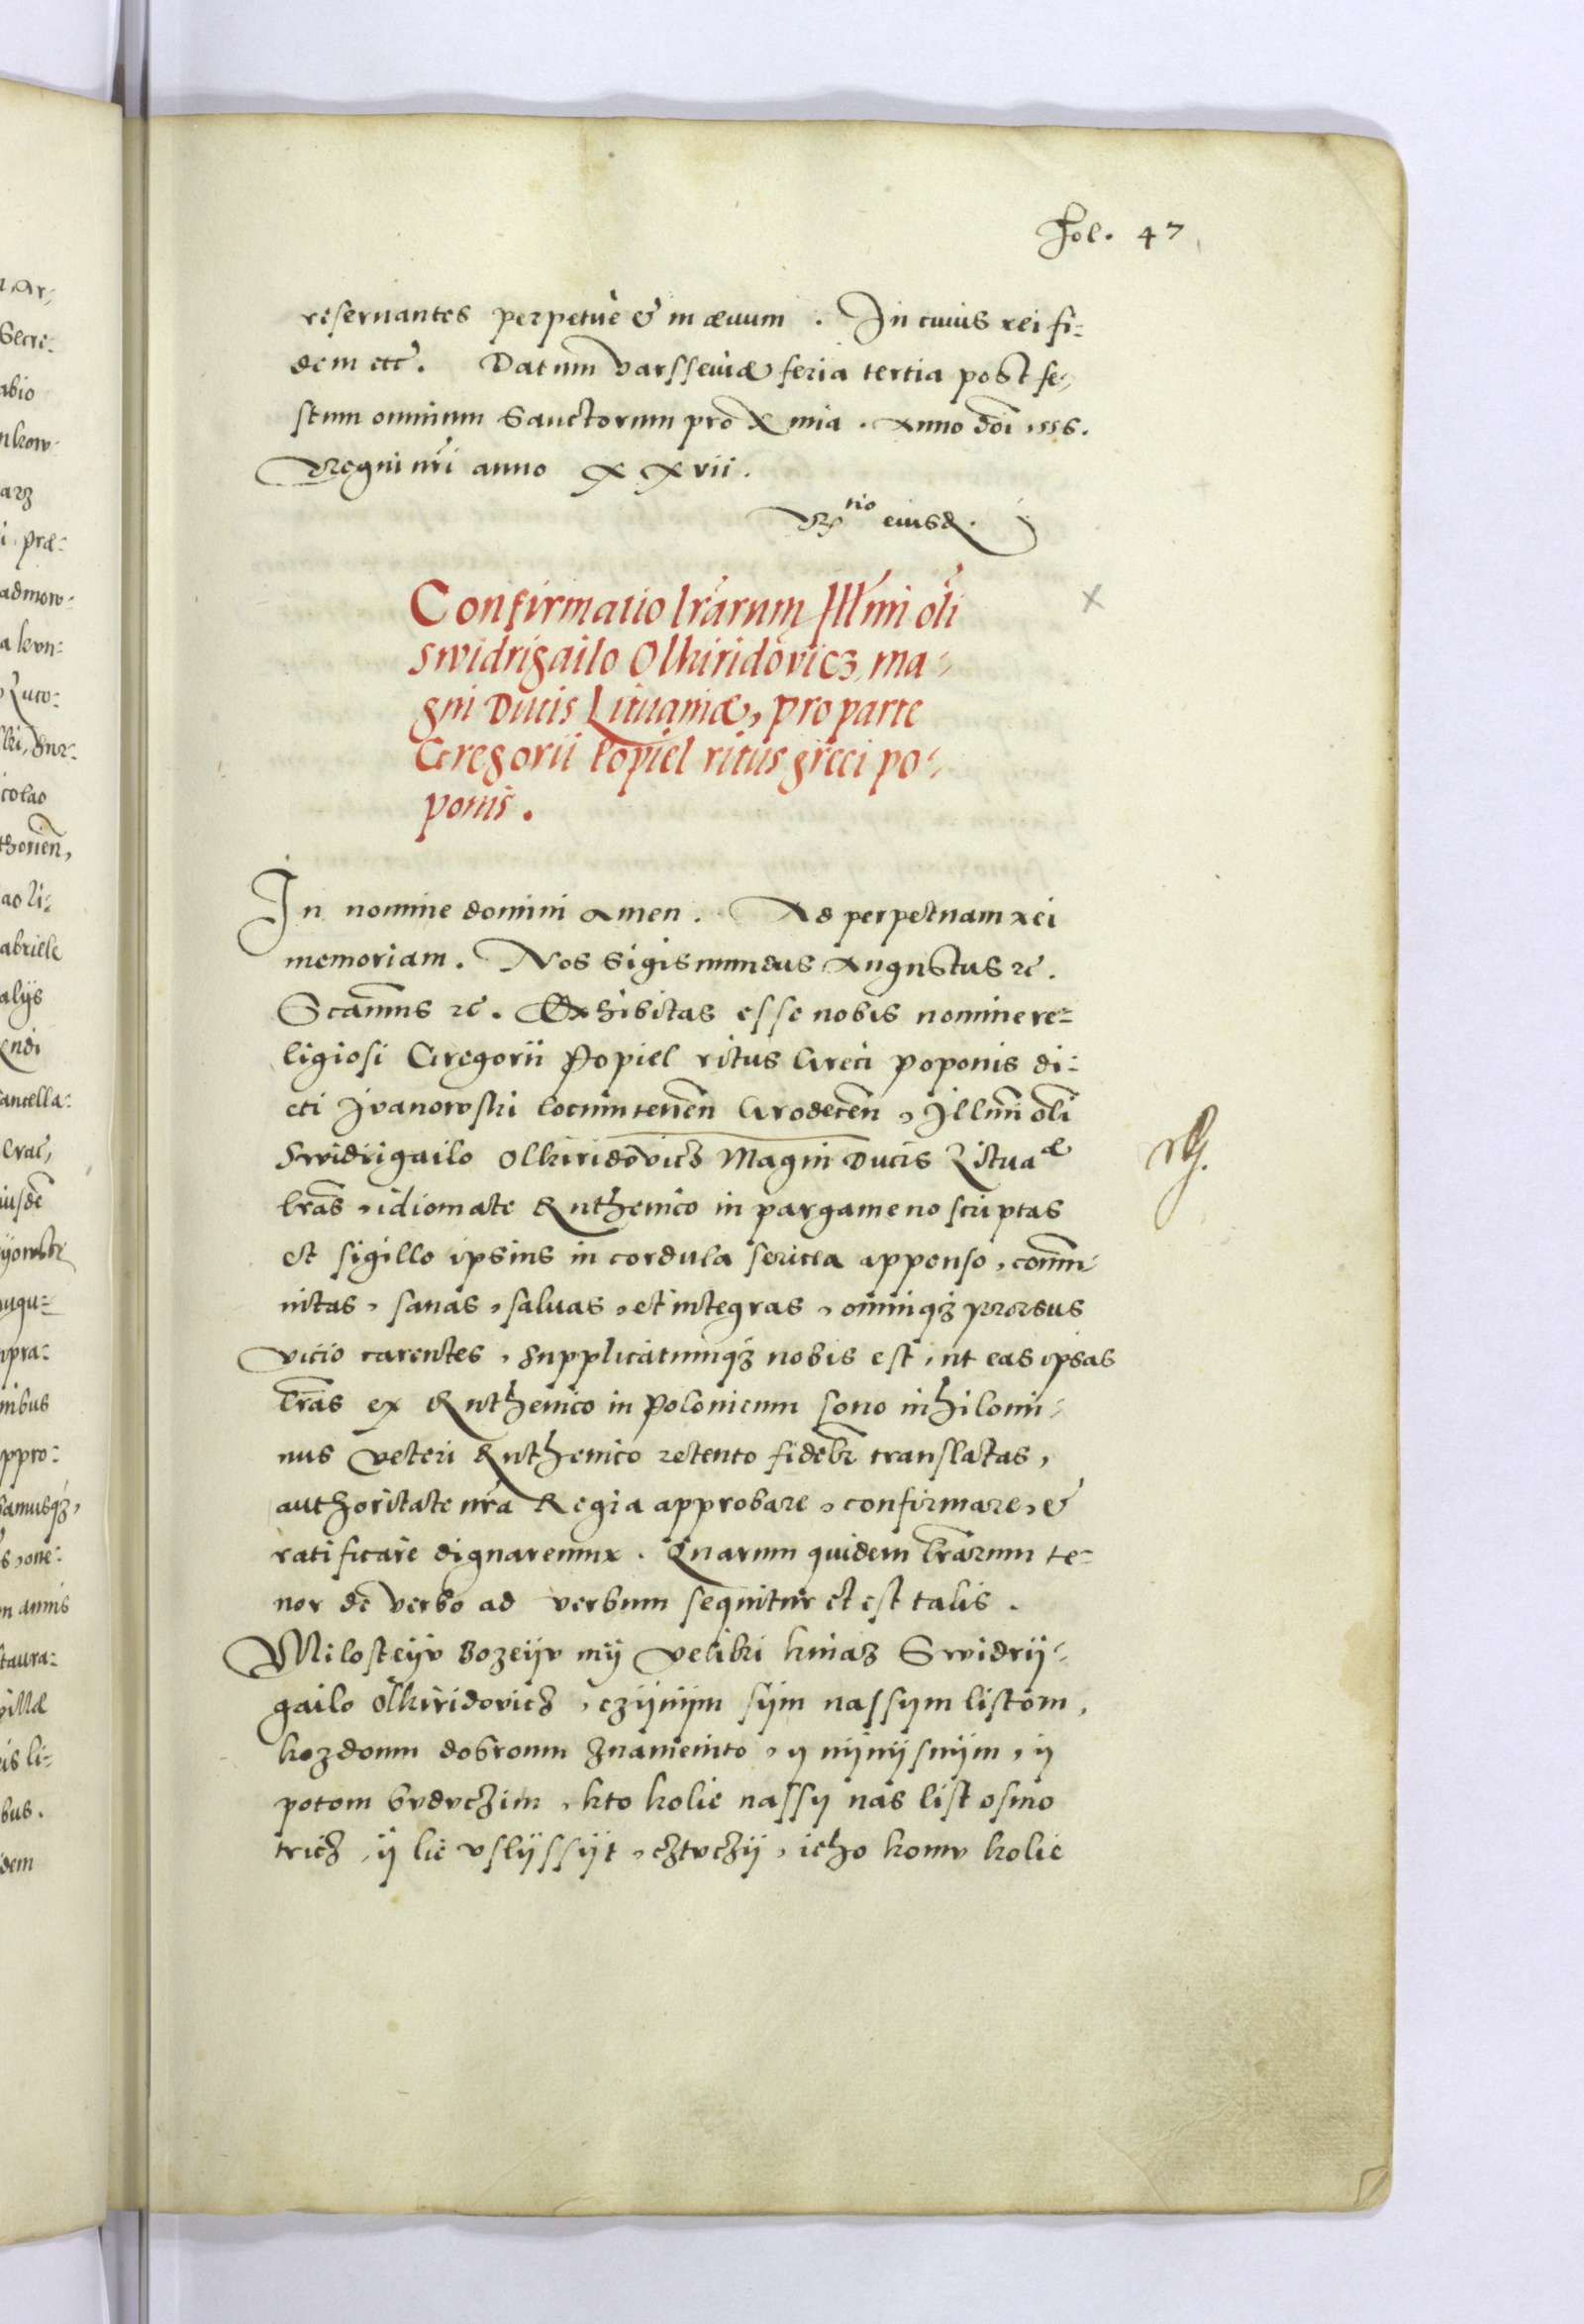 Fol. 47
reseruantes perpetue & in æuum. In cuius rei fi-
dem etc. Datum Varsseuiæ feria tertia post fe-
stum omnium Sanctorum proxmia. Anno dni 1556.
Regni nri anno xxvii.
Rtio eiusd.
Confirmatio lrarum Illmi oli
Swidrigailo Olkiridovicz, ma-
gni Ducis Lituaniæ, pro parte
Gregorii Popiel ritus greci po-
ponis.
In nomine domini amen. Ad perpetuam rei
memoriam. Nos Sigismundus Augustus etc.
Scamus etc. Exhibitas esse nobis nomine re-
ligiosi Gregorii Popiel ritus Greci poponis di-
cti Ivanowski locumtenen Grodecen, Illmi oli
Swidrigailo Olkiridovicz Magni Ducis Lituaæ
lras, idiomate Ruthenico in pargameno scriptas
et sigillo ipsius in cordula sericea appenso, commu-
nitas, sanas, saluas, et integras, omniq; prorsus
vicio carentes, supplicatumq; nobis est, ut eas ipsas
lras ex Ruthenico in Polonicum sono nihilomi-
nus veteri Ruthenico retento fidelr translatas,
authoritate nra Regia approbare, confirmare, &
ratificare dignaremur. Quarum quidem lrarum te-
nor de verbo ad verbum sequitur et est talis.
Milosteyv Bozeyv my veliki kniaz Swidry-
gailo Olkiridovicz, czynym sym nassym listom,
kozdomu dobromu znamenito, y nynysnym, y
potom bvdvczim, kto kolie nassy nas list osmo
tricz, y lie vslyssyt, cztvczy, ieho komv kolie